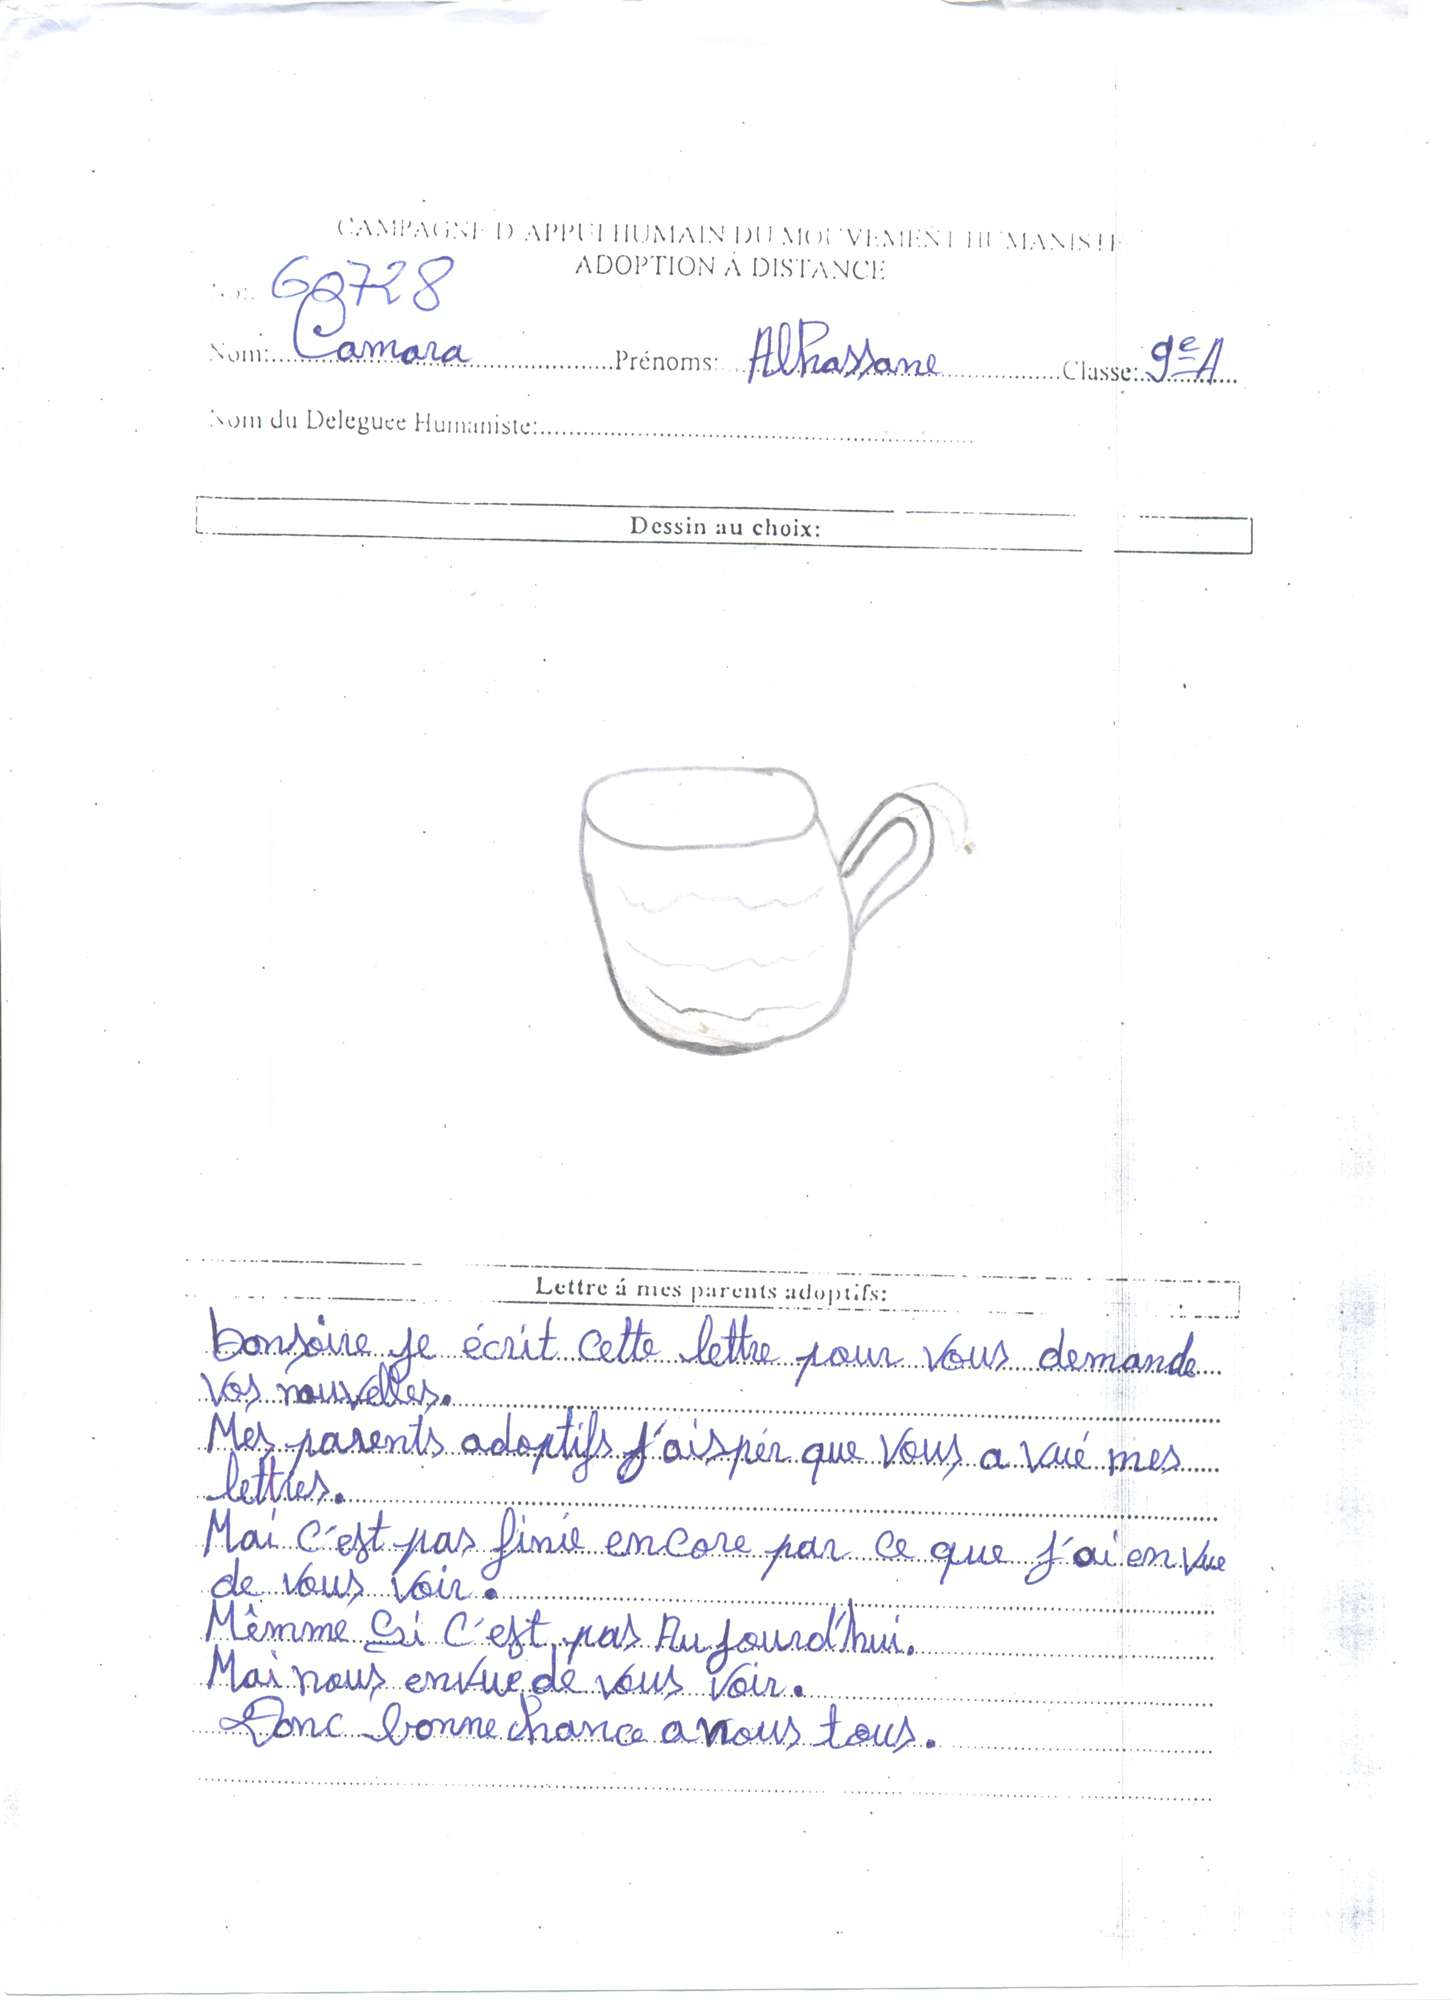 CAMPAGNE D'APPUI HUMAIN DU MOUVEMENT HUMANISTE
ADOPTION Á DISTANCE
60728
Nom: Camara Prénoms: Alhassane Classe: 9e A
Nom du Deleguee Humaniste:
Dessin au choix:
Lettre á mes parents adoptifs:
bonsoire je écrit cette lettre pour vous demande
vos nouvelles.
Mes parents adoptifs j'aispér que vous a vué mes
lettres.
Mai c'est pas finie encore par ce que j'ai en vue
de vous voir.
Mêmme Si c'est pas Aujourd'hui.
Mai nous en vue de vous voir.
Donc bonne chance a nous tous.